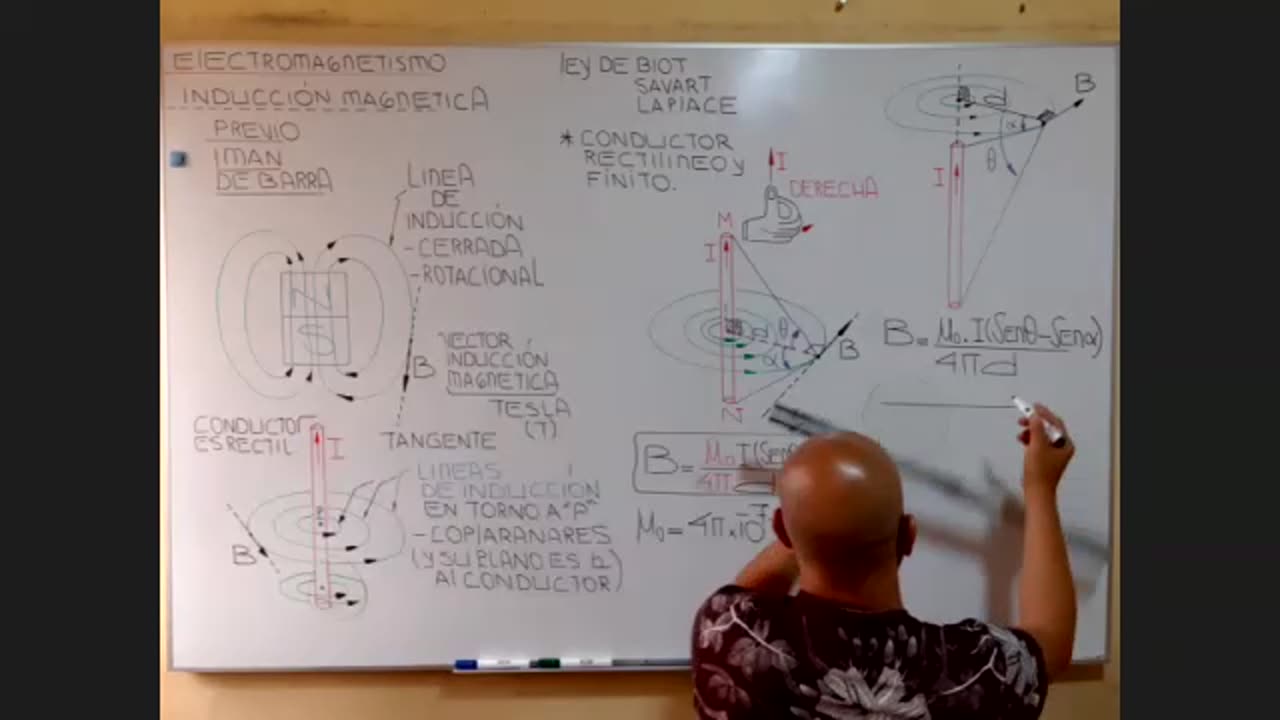 ElECTROMAGNETISMO
INDUCCIÓN MAGNETICA
PREVIO
IMAN
DE BARRA
LINEA
DE
INDUCCIÓN
-CERRADA
-ROTACIONAL
N
S
B
VECTOR
INDUCCIÓN
MAGNETICA
TESLA
(T)
TANGENTE
CONDUCTOR
ES RECTIL
I
B
LINEAS
DE INDUCCIÓN
EN TORNO A "P"
-COPLARANARES
(Y SU PLANO ES
Al CONDUCTOR)
lEY DE BIOT
SAVART
LAPlACE
* CONDUCTOR
RECTILINEO y
FÍNITO.
I
DERECHA
M
I
d
θ
α
B
N
B = Mo I(Senθ
4π d
Mo = 4π x 10-7
d
B
α
θ
I
B = Mo. I(Senθ-Senα)
4πd